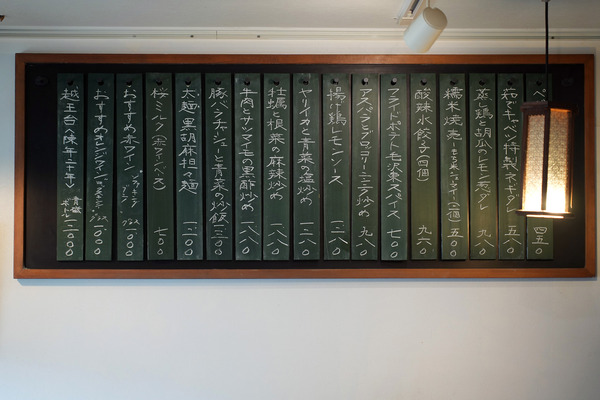 ペ 四五〇
茹でキャベツ特製ネギダレ 五八〇
蒸し鶏と胡瓜のレモン葱ダレ 九八〇
糯米焼売 (二個) 五〇〇
酸辣水餃子(四個) 九六〇
フライドポテト毛沢東スパイス 七〇〇
アスパラとブロッコリーニンニク炒め 九八〇
揚げ鶏レモンソース 一二八〇
ヤリイカと青菜の塩炒め 一二八〇
牡蠣と根菜の麻辣炒め 一八八〇
牛肉とサツマイモの黒酢炒め 一八八〇
豚バラチャーシューと青菜の炒飯 一三八〇
太麺黒胡麻担々麺 一一〇〇
桜ミルク 七〇〇
おすすめ赤ワイン グラス 一〇〇〇
おすすめオレンジワイン グラス 一一〇〇
越王台 陳年二十年 青磁ボトル 一二〇〇〇